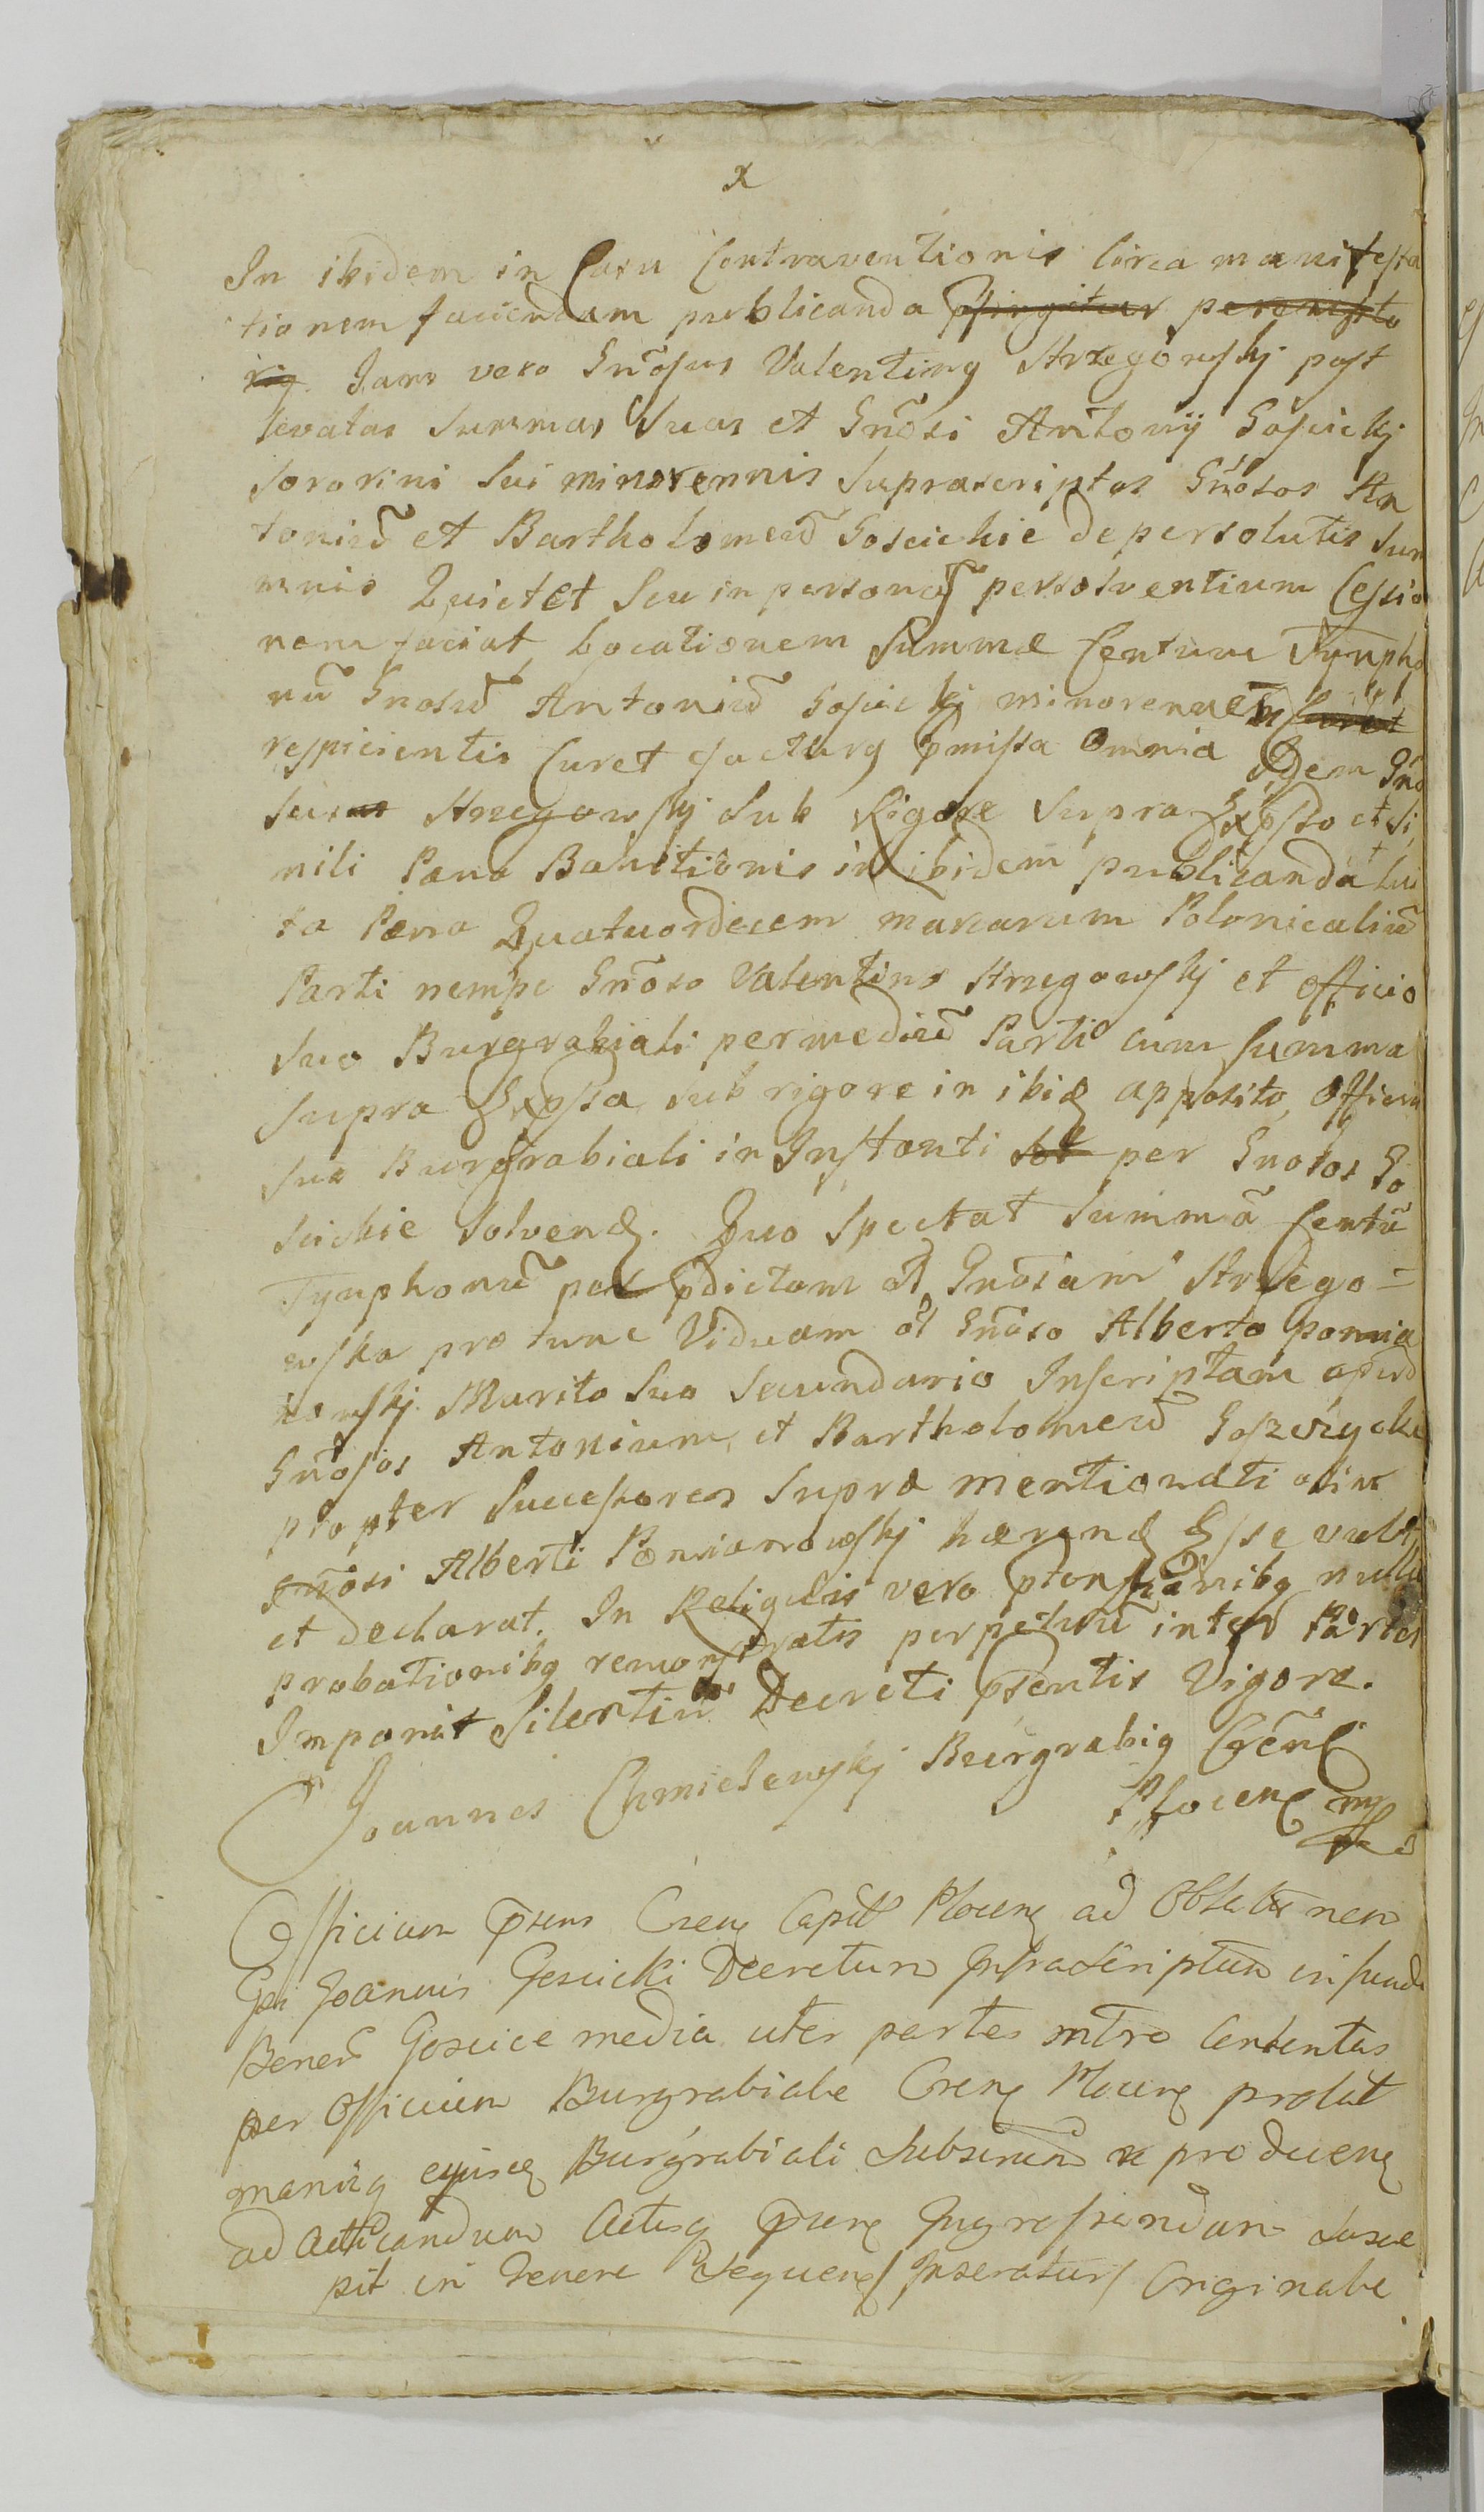 x
In ibidem in Casu Contraventionis Circa manifesta
tionem faciendam publicanda
Jam vero Gnõsus Valentinus Strzegowskj post
levatas Summas Suas et Gnõsi Antonij Goscickj
Sororini Sui minorennis Suprascriptos Gnõsos An
toniũ et Bartholomeũ Goscickie de persolutis Sum
mis Quietet Seu in personas persolventium Cessio
nem faciat, Locationem Summæ Centum Tynpho
nũ Gnosũ Antoniũ Goscickj minorennem
respicientis Curet facturq pmissa Omnia Idem Gnõ
sus Strzegowskj Sub Rigore Supra Expsso et Si
mili Pæna Banitionis in ibidem publicanda Lui
ta Pæna Quatuordecem marcarum Polonicaliũ
Parti nempe Gnõso Valentino Strzegowskj et officio
Suo Burgrabiali per mediũ Parti cum Summa
Supra Expssa, sub rigore in ibid apposito, Officio
Suo Burgrabiali in Instanti per Gnosos Go
scickie Solvend. Quo Spectat Summã Centũ
Tynphonũ per pdictam ol Gnõsam Strzego=
wska pro tunc Viduam ol Gnõso Alberto poniã
towskj Marito Suo Secundario Inscriptam apud
Gnõsos Antonium, et Bartholomeũ Goszczycki
propter Successores Supra mentionati olim
Gnõsi Alberti Poniatowskj hærend Esse vult
et declarat. In Reliquis vero ptensionibq nullis
probationibq remonstratis perpetuũ inter Partes
Imponit Silentiũ Decreti psentis Vigore.
Joannes Chmielewskj Burgrabiq Crẽn
Plocen mp
Officium psens Cren Capit Plocen ad Oblationem
Gsi Joannis Goscicki Decretum Infrascriptum in fundo
Bonor Goscice media inter partes intro Contentas
per Officium Burgrabiale Cren Plocen prolat
manuq ejusq Burgrabiali Subscrium produceng
ad acticandum Actisq psen Ingrossandum Susce
pit in Tenore Sequen Inseratur Originale